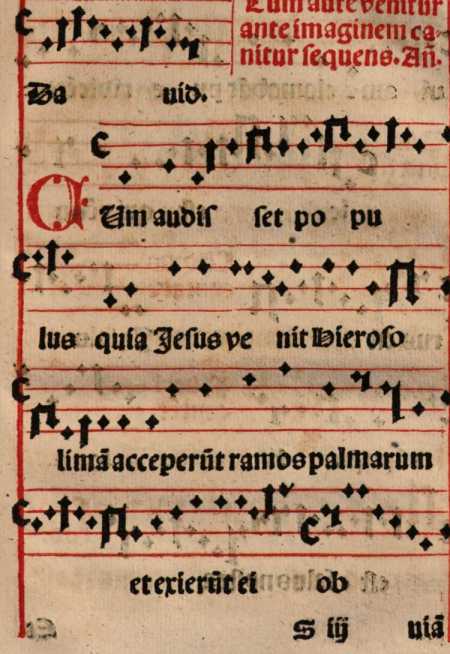 Cum aūte venitur
ante imaginem ca-
nitur sequens. Añ.
Da uid.
CUm audis set po pu
lus quia Jesus ve nit Hieroso
limā acceperūt ramos palmarum
et exierūt ei ob
S iij uiā